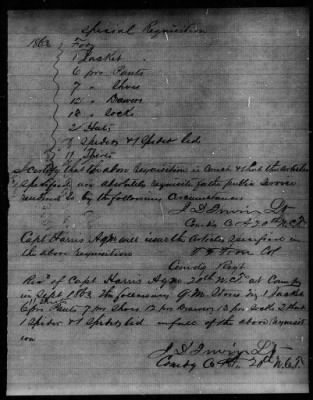 Special Requisition
1863 For
1 Jacket
6 prs Pants
7 " Shoes
12 " Drawers
18 " Socks
2 Hats
1 Spider & 1 Spider lid
I certify that the above requisition is correct & that the articles
specified are absolutely requisite for the public service
rendered so by the following circumstances
J. D. Irvin Lt
Comdg Co 20th N.C.T.
Capt Harris AQM will issue the articles specified in
the above requisition
Col
Comdg Regt
Recd of Capt Harris AQM 20th N.C.T. at Camp
in Sept 1863 the following Q.M. Stores viz 1 Jacket
6 prs Pants 7 prs Shoes 12 prs Drawers 18 prs Socks 2 Hats
1 Spider & 1 Spider lid in full of the above requisit
ion
J. D. Irvin Lt
Comdg Co 20th N.C.T.